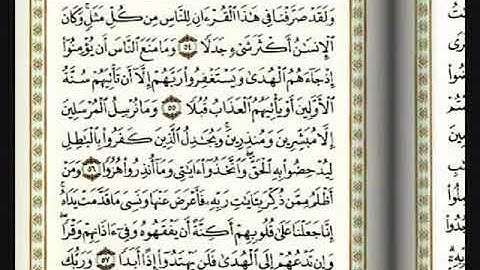 وَلَقَدْ صَرَّفْنَا فِي هَٰذَا ٱلْقُرْءَانِ لِلنَّاسِ مِن كُلِّ مَثَلٍ ۚ وَكَانَ
ٱلْإِنسَٰنُ أَكْثَرَ شَىْءٍ جَدَلًا ٥٤ وَمَا مَنَعَ ٱلنَّاسَ أَن يُؤْمِنُوٓا۟
إِذْ جَآءَهُمُ ٱلْهُدَىٰ وَيَسْتَغْفِرُوا۟ رَبَّهُمْ إِلَّآ أَن تَأْتِيَهُمْ سُنَّةُ
ٱلْأَوَّلِينَ أَوْ يَأْتِيَهُمُ ٱلْعَذَابُ قُبُلًا ٥٥ وَمَا نُرْسِلُ ٱلْمُرْسَلِينَ
إِلَّا مُبَشِّرِينَ وَمُنذِرِينَ ۚ وَيُجَٰدِلُ ٱلَّذِينَ كَفَرُوا۟ بِٱلْبَٰطِلِ
لِيُدْحِضُوا۟ بِهِ ٱلْحَقَّ ۖ وَٱتَّخَذُوٓا۟ ءَايَٰتِى وَمَآ أُنذِرُوا۟ هُزُوًا ٥٦ وَمَنْ
أَظْلَمُ مِمَّن ذُكِّرَ بِـَٔايَٰتِ رَبِّهِۦ فَأَعْرَضَ عَنْهَا وَنَسِىَ مَا قَدَّمَتْ يَدَاهُ ۚ
إِنَّا جَعَلْنَا عَلَىٰ قُلُوبِهِمْ أَكِنَّةً أَن يَفْقَهُوهُ وَفِىٓ ءَاذَانِهِمْ وَقْرًا ۖ
وَإِن تَدْعُهُمْ إِلَى ٱلْهُدَىٰ فَلَن يَهْتَدُوٓا۟ إِذًا أَبَدًا ٥٧ وَرَبُّكَ